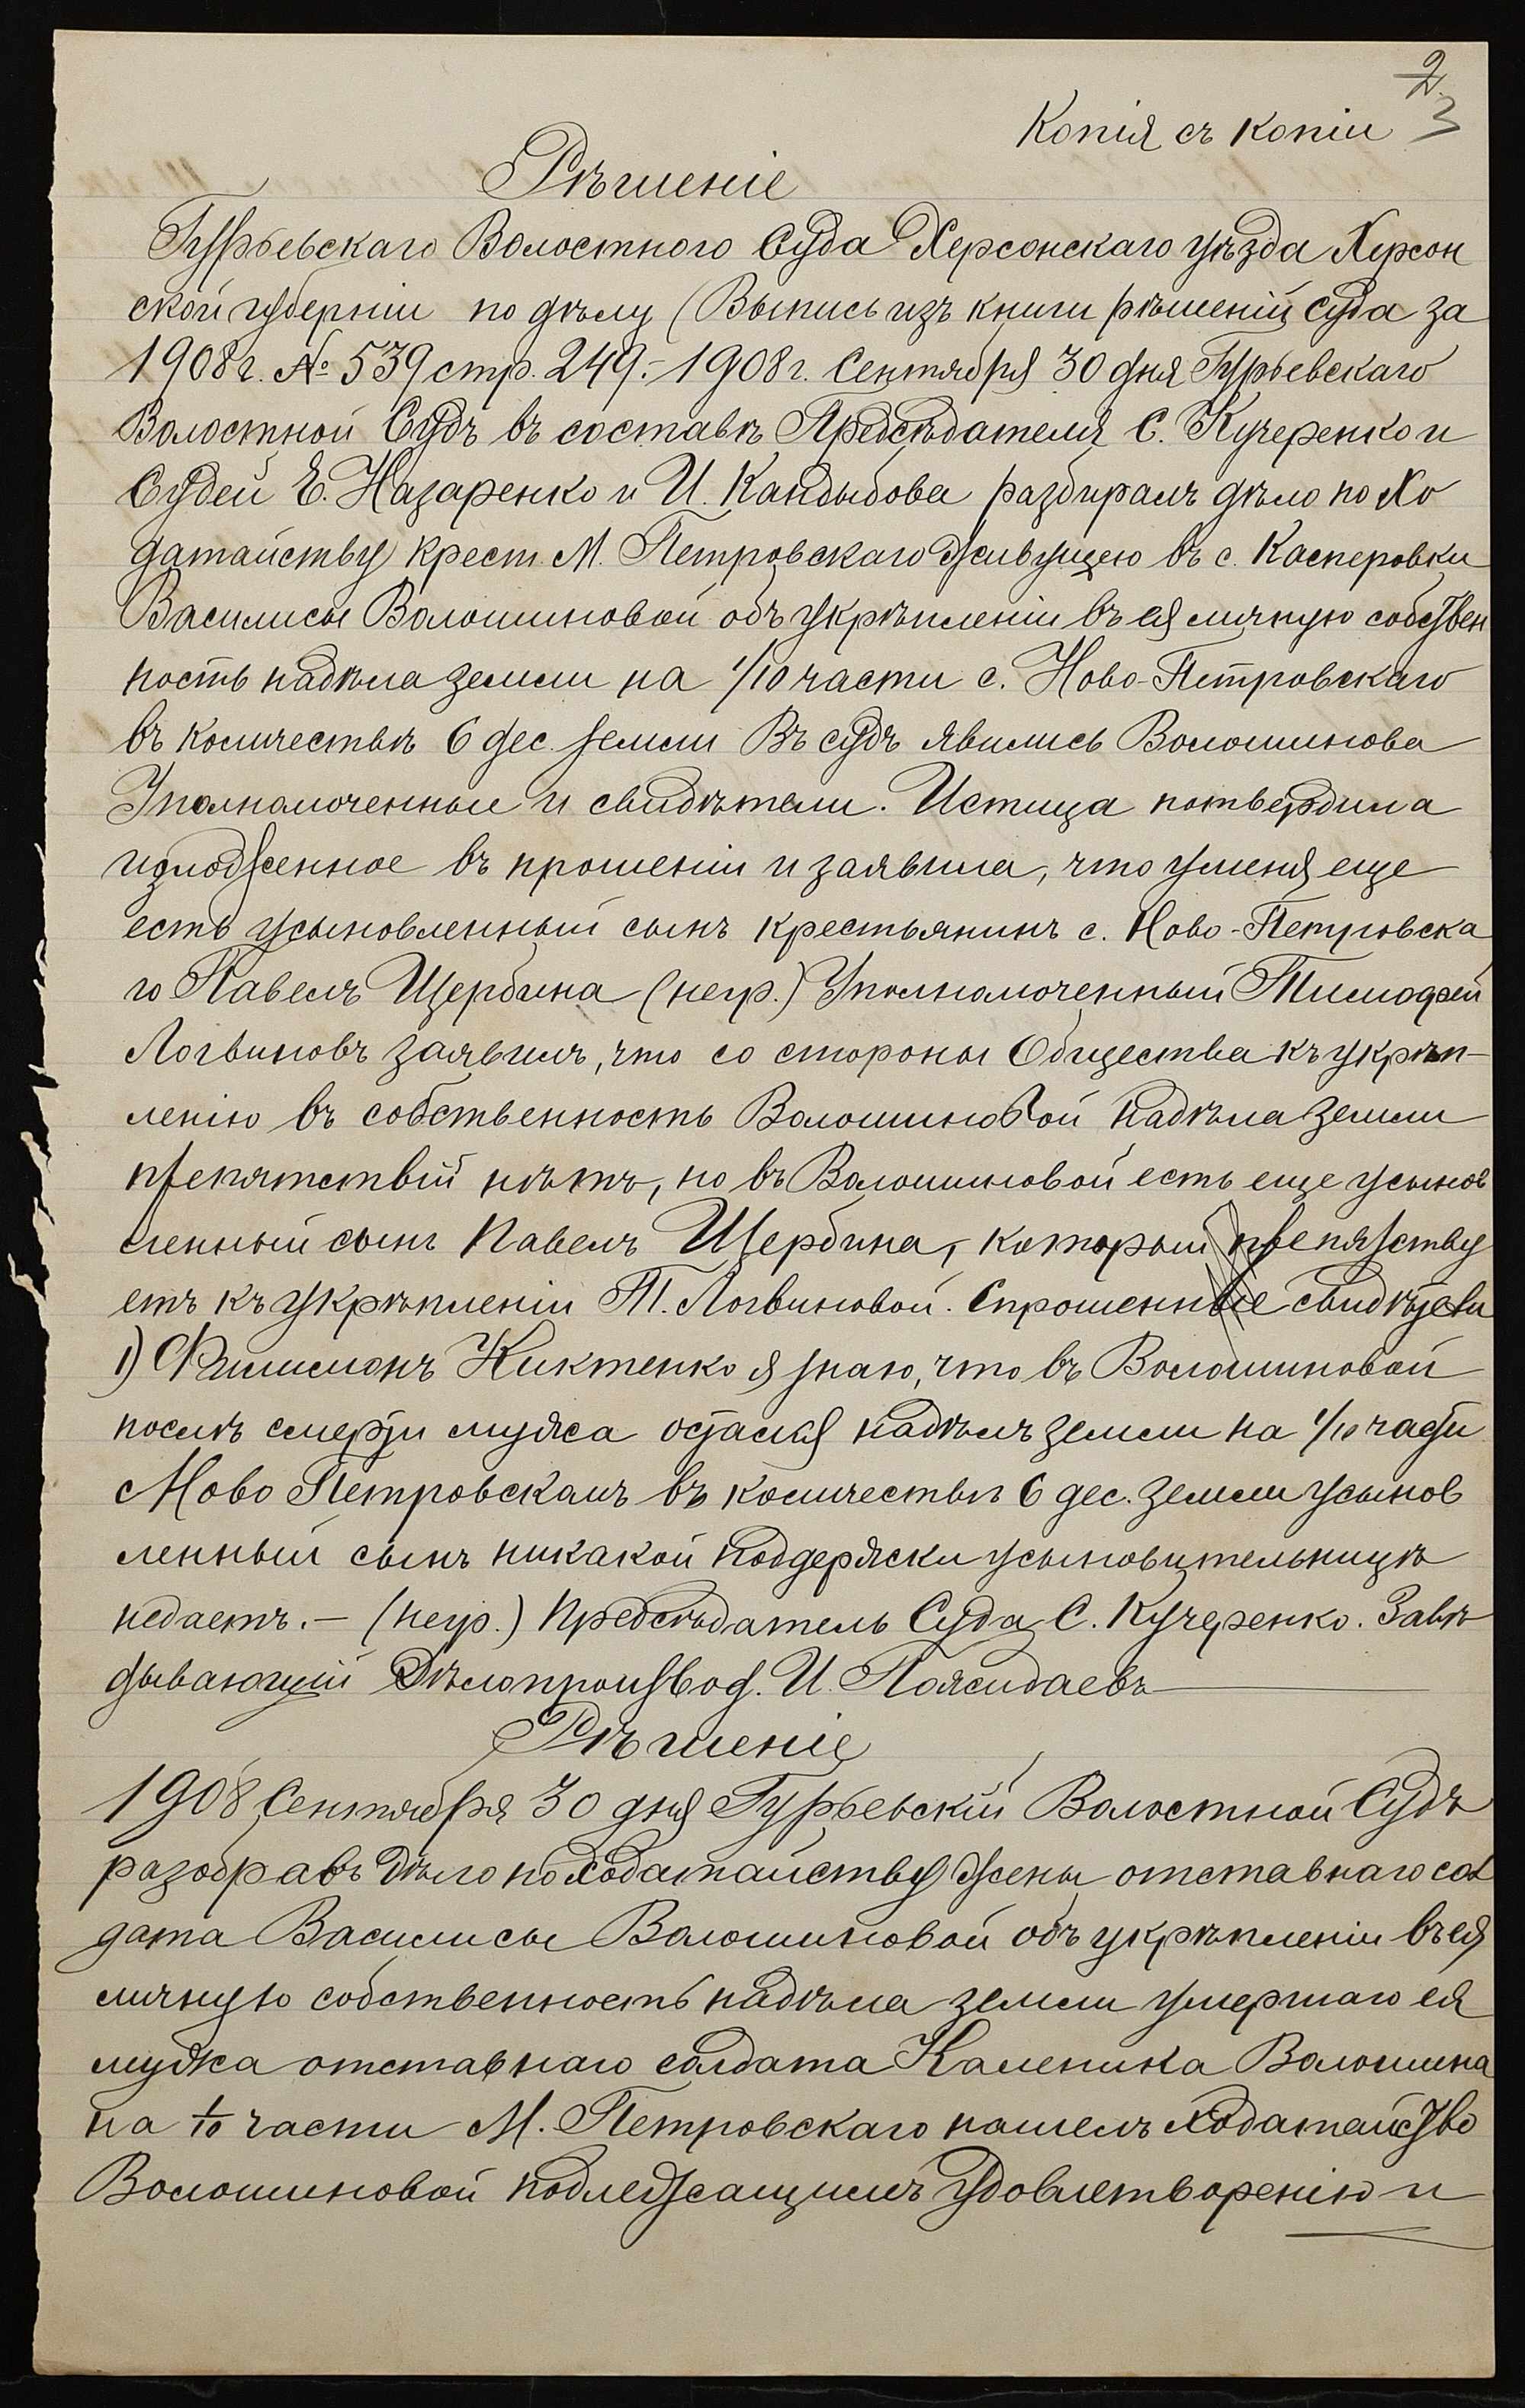 2
3
Копія съ копіи
Рѣшеніе
Гурьевскаго Волостного Суда Херсонскаго уѣзда Херсон
ской губерніи по дѣлу (Выпись изъ книги рѣшеній суда за
1908 г. № 539 стр. 249.- 1908 г. Сентября 30 дня Гурьевскаго
Волостной Судъ въ составѣ Предсѣдателя С. Кучеренко и
Судей Е. Назаренко и И. Кандыбова разбиралъ дѣло по Хо
датайству крест. М. Петровскаго живущею въ с. Касперовки
Василисы Волошиновой объ укрѣпленіи въ ея личную собствен
ность надѣла земли на 1/10 части с. Ново-Петровскаго
въ количествѣ 6 дес. земли Въ судъ явились Волошинова
Уполномоченные и свидѣтели. Истица потвердила
изложенное въ прошеніи и заявила, что у меня еще
есть усыновленный сынъ крестьянинъ с. Ново-Петровска
го Павелъ Щербина (негр.) Уполномоченный Тимофей
Логвиновъ заявилъ, что со стороны Общества къ укрѣп-
ленію въ собственность Волошиновой надѣла земли
препятствій нѣтъ, но въ Волошиновой есть еще усынов
ленный сынъ Павелъ Щербина, который препятству
етъ къ укрѣпленіи Т. Логвиновой. Спрошенные свидѣтели
1) Филимонъ Никтенко я знаю, что въ Волошиновой
послѣ смерти мужа остался надѣлъ земли на 1/10 части
Ново Петровскамъ въ количествѣ 6 дес. земли усынов
ленный сынъ никакой поддержки усыновительницѣ
недаетъ.- (негр.) Предсѣдатель Суда С. Кучеренко. Завѣ
дывающій Дѣлопроизвод. И.
Рѣшеніе
1908 Сентября 30 дня Гурьевскій Волостной Судъ
разобравъ дѣло по ходатайству жены отставнаго сол
дата Василисы Волошиновой объ укрѣпленіи въ ея
личную собственность надѣла земли умершаго ея
мужа отставнаго солдата Каленика Волошина
на 1/10 части М. Петровскаго нашелъ ходатайство
Волошиновой подлежащимъ удовлетворенію и